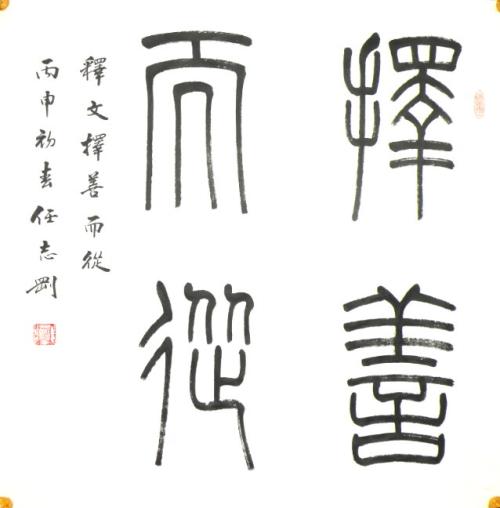 擇善
而從
釋文擇善而從
丙申初春任志剛